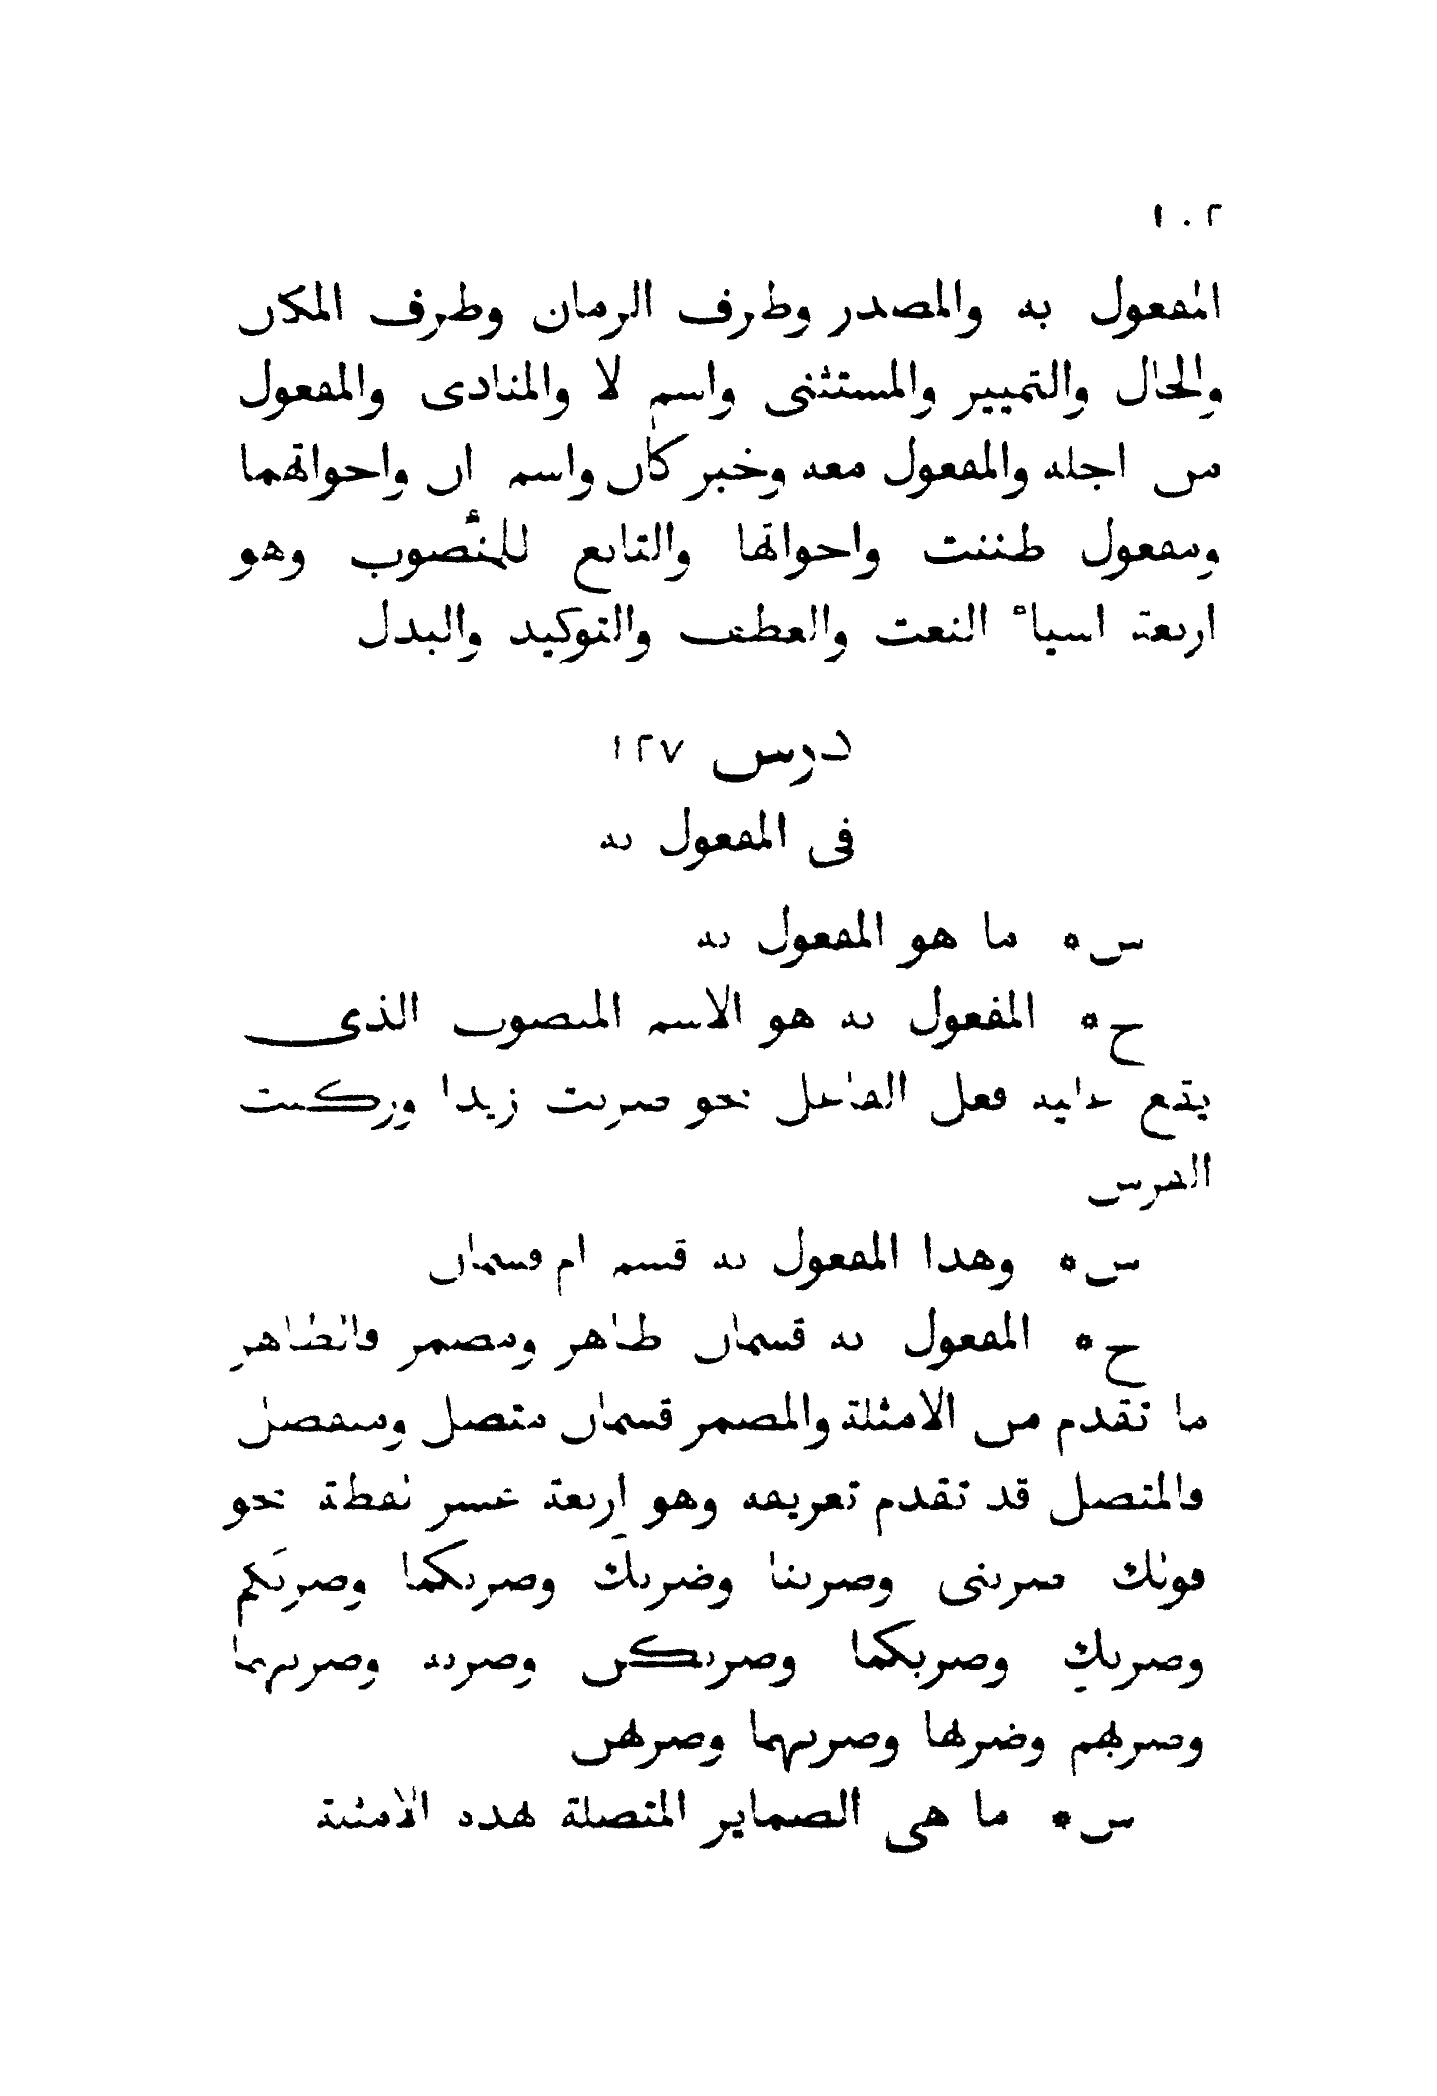 ١٠٢
المفعول به والمصدر وظرف الزمان وظرف المكان
والحال والتمييز والمستثنى واسم لا والمنادى والمفعول
من اجله والمفعول معه وخبر كان واسم ان واخواتهما
ومفعول ظننت واخواتها والتابع للمنصوب وهو
اربعة اشياء النعت والعطف والتوكيد والبدل
درس ١٢٧
فى المفعول به
س * ما هو المفعول به
ج * المفعول به هو الاسم المنصوب الذى
يقع عليه فعل الفاعل نحو ضربت زيدا وركبت
الفرس
س * وهذا المفعول به قسم ام قسمان
ج * المفعول به قسمان ظاهر ومضمر فالظاهر
ما تقدم من الامثلة والمضمر قسمان متصل ومنفصل
فالمتصل قد تقدم تعريفه وهو اربعة عشر لفظة نحو
قولك ضربنى وضربنا وضربكَ وضربكما وضربكم
وضربكِ وضربكما وضربكن وضربه وضربهما
وضربهم وضربها وضربهما وضربهن
س * ما هى الضماير المتصلة لهذه الامثلة